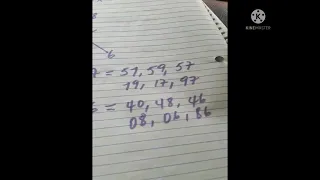 6
7 = 51, 59, 57
19, 17, 97
= 40, 48, 46
08, 06, 86
KINEMASTER